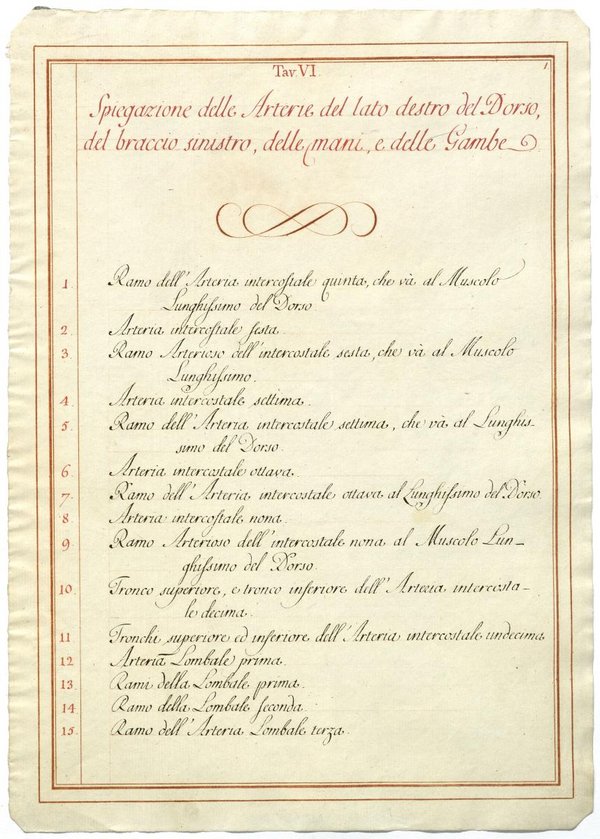 Tav. VI.
1
Spiegazione delle Arterie del lato destro del Dorso,
del braccio sinistro, delle mani, e delle Gambe
1. Ramo dell'Arteria intercoſtale quinta, che và al Muscolo
Lunghiſsimo del Dorso
2. Arteria intercoſtale ſesta.
3. Ramo Arterioso dell'intercostale sesta, che và al Muscolo
Lunghiſsimo.
4. Arteria intercostale settima.
5. Ramo dell'Arteria intercostale settima, che và al Lunghis-
simo del Dorso.
6. Arteria intercostale ottava.
7. Ramo dell'Arteria intercostale ottava al Lunghiſsimo del Dorso.
8. Arteria intercoſtale nona.
9. Ramo Arterioso dell'intercostale nona al Muscolo Lun-
ghiſsimo del Dorso.
10. Tronco superiore, e tronco inferiore dell'Arteria intercosta-
le decima.
11 Tronchi superiore ed inferiore dell'Arteria intercostale undecima
12 Arteria Lombale prima.
13. Rami della Lombale prima.
14. Ramo della Lombale ſeconda.
15. Ramo dell'Arteria Lombale terza.